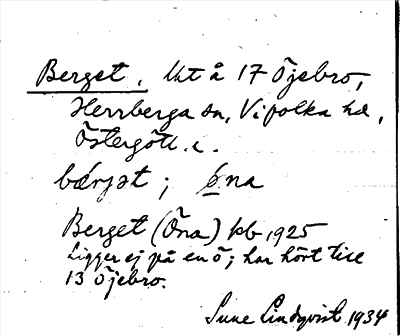 Berget. Utå 17 Öjebro,
Herrberga sn, Vifolka hd,
Östergötl.
bǽrjət; ö́na
Berget (Öna) kb 1925
Ligger ej på en ö; har hört till
13 Öjebro.
Sune Lindqvist 1934